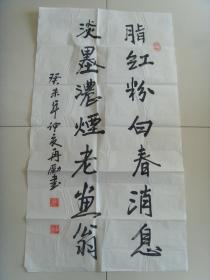 脂红粉白春消息
淡墨濃煙老畫翁
癸未年仲夏再勵書